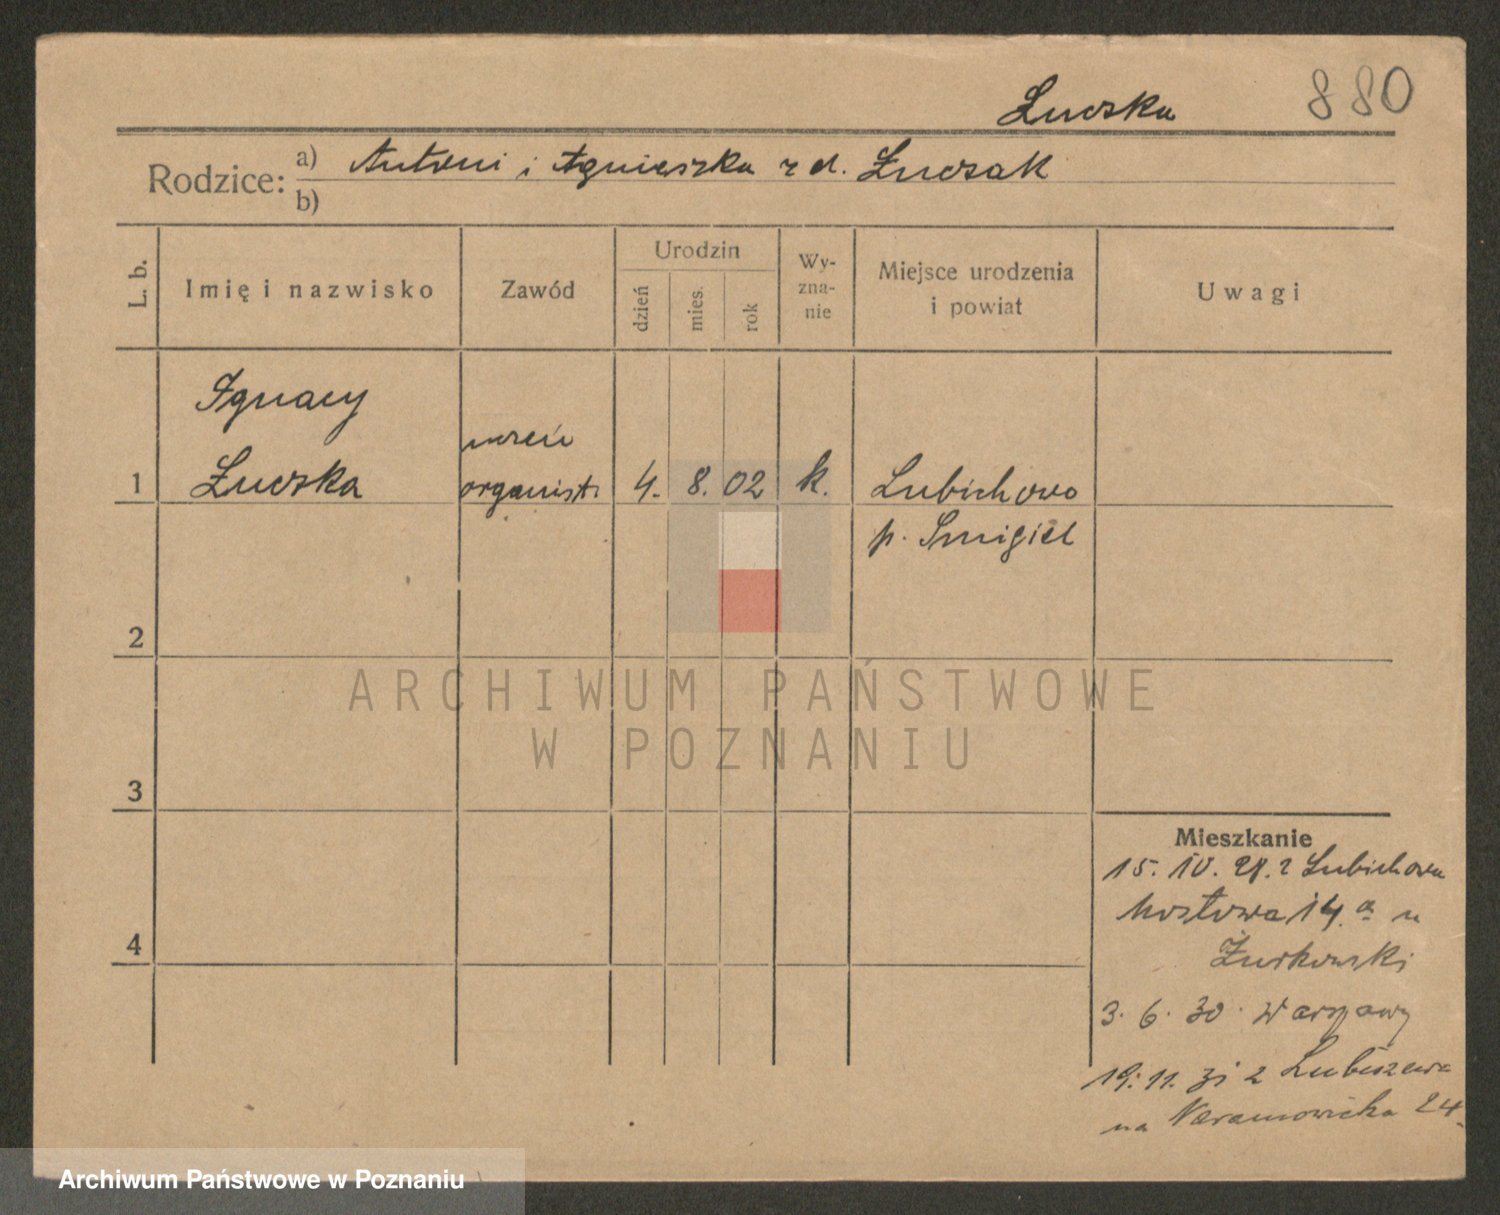 Łuczka 880
Rodzice: a) Antoni i Agnieszka z d. Łuczak
b)
L. b. Imię i nazwisko Zawód Urodzin dzień mies. rok Wy-zna-nie Miejsce urodzenia i powiat Uwagi
Ignacy
uczeń
1 Łuczka organist. 4. 8. 02 k. Lubichowo
p. Smigiel
2
ARCHIWUM PAŃSTWOWE
W POZNANIU
3
Mieszkanie
15. IV. 28. z Lubichowa
Mostowa 14a u
4 Żurkowski
3. 6. 30.
19. 11. 31 z
na Naramowicka 24.
Archiwum Państwowe w Poznaniu